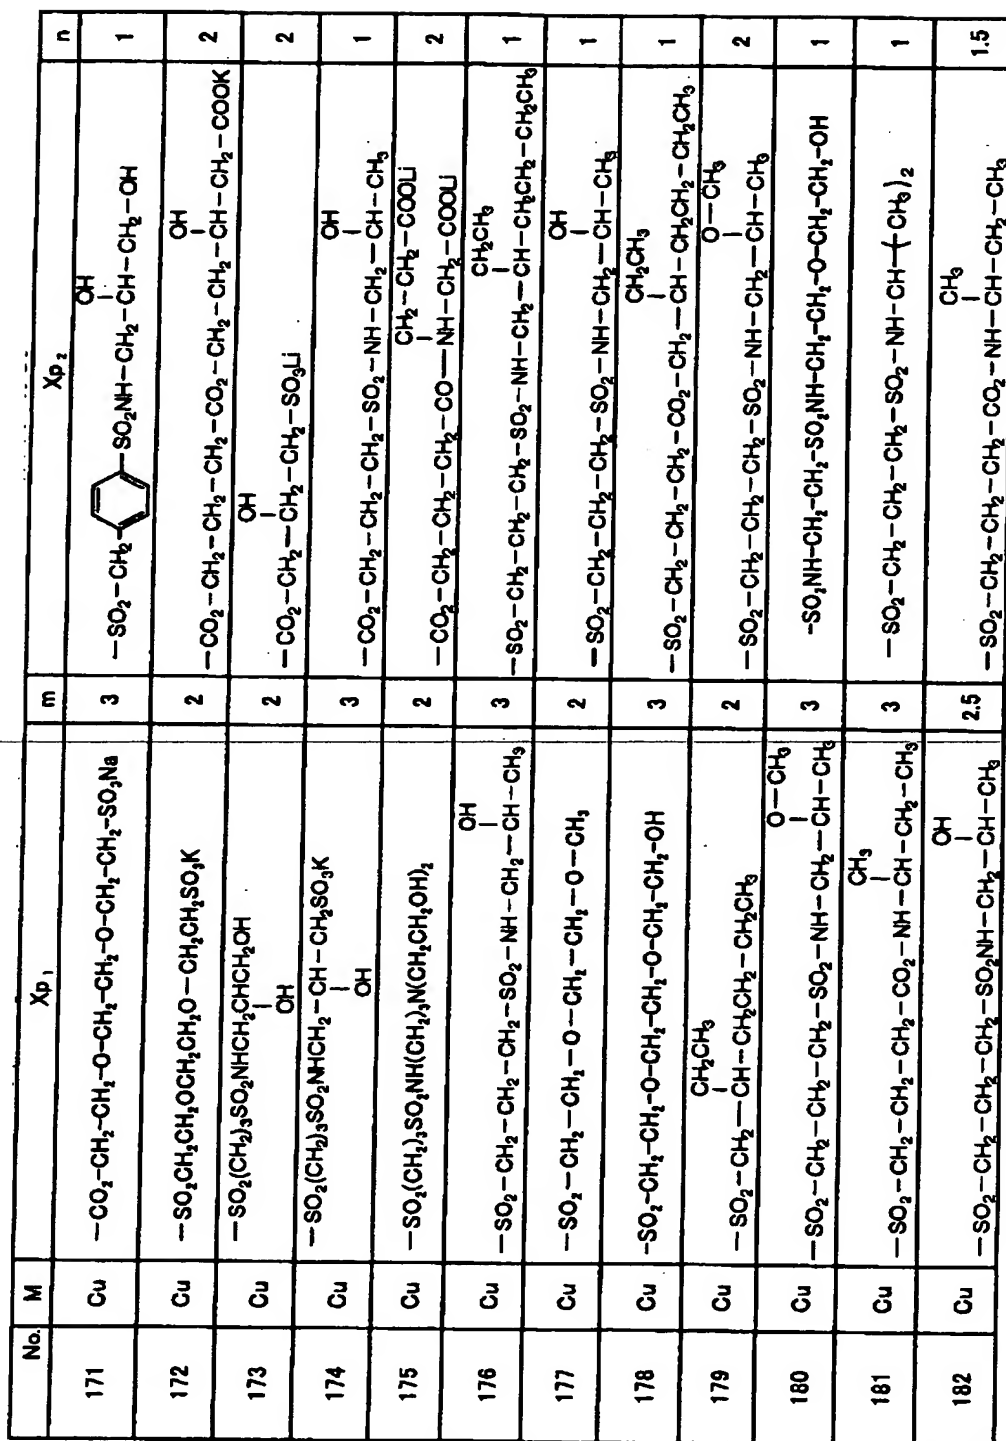 No. M Xp₁ m Xp₂ n
171 Cu —CO₂-CH₂-CH₂-O-CH₂-CH₂-O-CH₂-CH₂-SO₃Na 3 —SO₂-CH₂-⌬-SO₂NH-CH₂-CH(OH)-CH₂-OH 1
172 Cu —SO₂CH₂CH₂OCH₂CH₂O-CH₂CH₂SO₃K 2 —CO₂-CH₂-CH₂-CH₂-CO₂-CH₂-CH₂-CH(OH)-CH₂-COOK 2
173 Cu —SO₂(CH₂)₃SO₂NHCH₂CH(OH)CH₂OH 2 —CO₂-CH₂-CH₂(OH)-CH₂-SO₃Li 2
174 Cu —SO₂(CH₂)₃SO₂NHCH₂-CH(OH)-CH₂SO₃K 3 —CO₂-CH₂-CH₂-CH₂-SO₂-NH-CH₂-CH(OH)-CH₃ 1
175 Cu —SO₂(CH₂)₃SO₂NH(CH₂)₃N(CH₂CH₂OH)₂ 2 —CO₂-CH₂-CH₂-CH₂-CO-NH(CH₂-CH₂-COOLi)-CH₂-COOLi 2
176 Cu —SO₂-CH₂-CH₂-CH₂-SO₂-NH-CH₂-CH(OH)-CH₃ 3 —SO₂-CH₂-CH₂-CH₂-SO₂-NH-CH₂-CH(CH₂CH₃)-CH₂CH₂-CH₂CH₃ 1
177 Cu —SO₂-CH₂-CH₂-O-CH₂-CH₂-O-CH₃ 2 —SO₂-CH₂-CH₂-CH₂-SO₂-NH-CH₂-CH(OH)-CH₃ 1
178 Cu -SO₂-CH₂-CH₂-O-CH₂-CH₂-O-CH₂-CH₂-OH 3 —SO₂-CH₂-CH₂-CH₂-CO₂-CH₂-CH(CH₂CH₃)-CH₂CH₂-CH₂CH₃ 1
179 Cu —SO₂-CH₂-CH(CH₂CH₃)-CH₂CH₂-CH₂CH₃ 2 —SO₂-CH₂-CH₂-CH₂-SO₂-NH-CH₂-CH(O-CH₃)-CH₃ 2
180 Cu —SO₂-CH₂-CH₂-CH₂-SO₂-NH-CH₂-CH(O-CH₃)-CH₃ 3 -SO₂NH-CH₂-CH₂-SO₂NH-CH₂-CH₂-O-CH₂-CH₂-OH 1
181 Cu —SO₂-CH₂-CH₂-CH₂-CO₂-NH-CH(CH₃)-CH₂-CH₃ 3 —SO₂-CH₂-CH₂-CH₂-SO₂-NH-CH-(CH₃)₂ 1
182 Cu —SO₂-CH₂-CH₂-CH₂-SO₂NH-CH₂-CH(OH)-CH₃ 2.5 —SO₂-CH₂-CH₂-CH₂-CO₂-NH-CH(CH₃)-CH₂-CH₃ 1.5